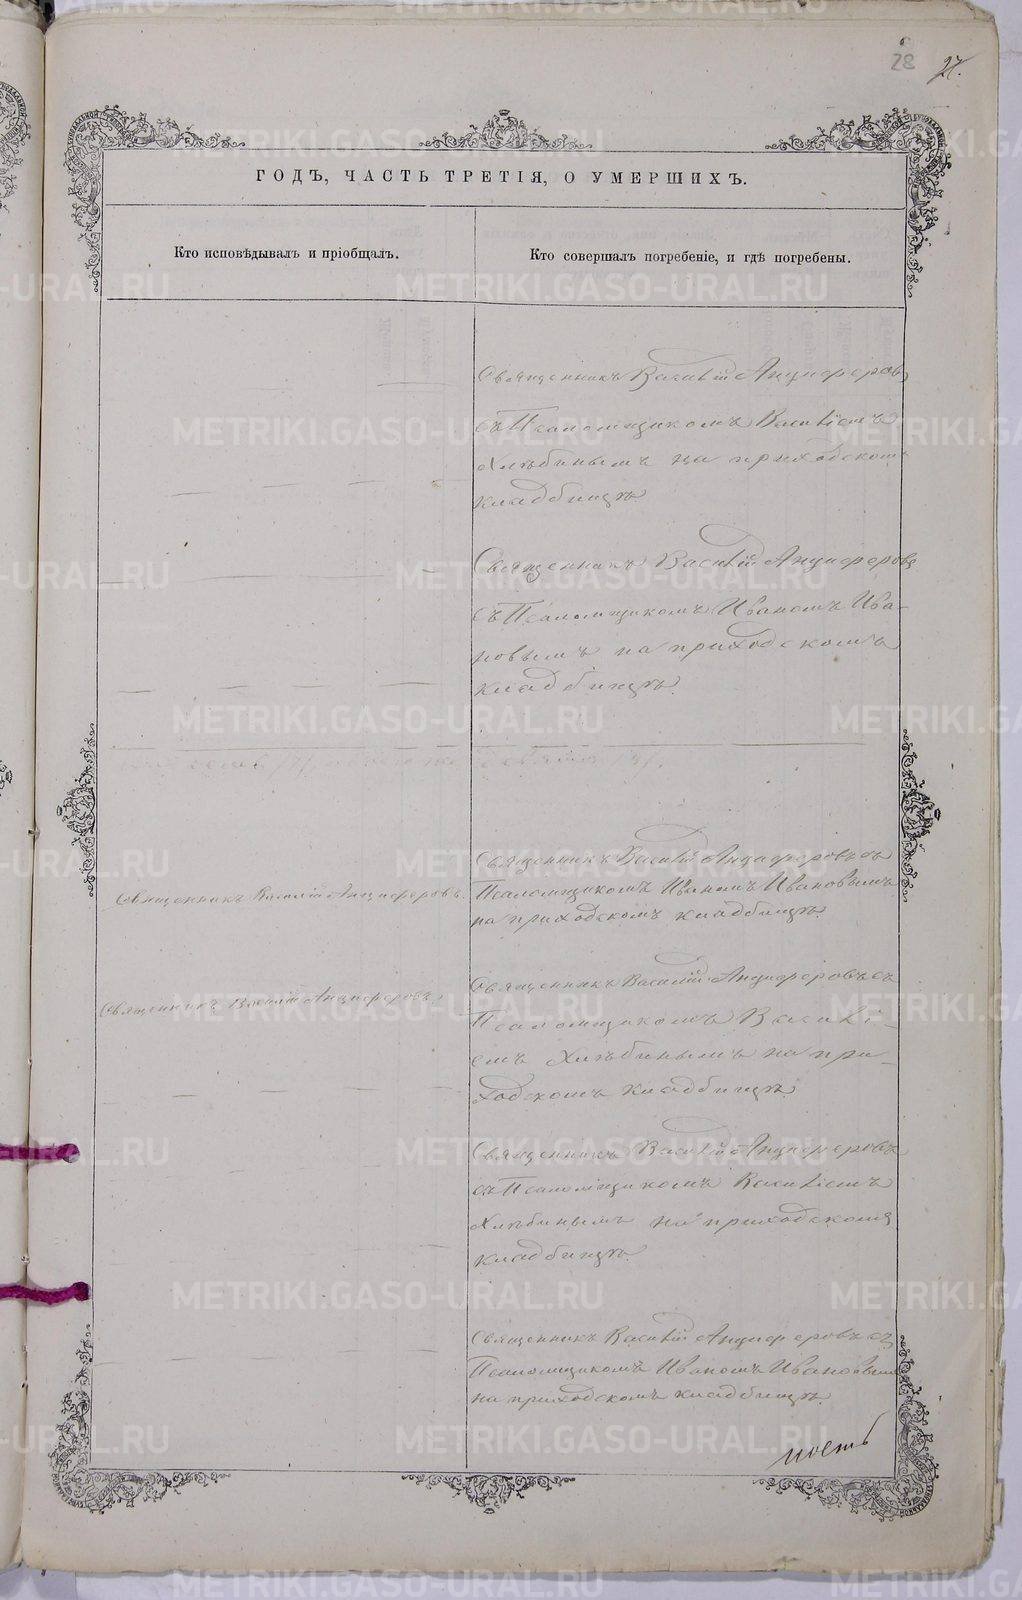 28 27.
ГОДЪ, ЧАСТЬ ТРЕТІЯ, О УМЕРШИХЪ.
Кто исповѣдывалъ и пріобщалъ.
Кто совершалъ погребеніе, и гдѣ погребены.
Священникъ Василій Анциферовъ
съ Псаломщикомъ Василіемъ
Хлѣбинымъ на приходскомъ
кладбищѣ
Священникъ Василій Анциферовъ
съ Псаломщикомъ Иваномъ Ива-
новымъ на приходскомъ
кладбищѣ.
Священникъ Василій Анциферовъ.
Священникъ Василій Анциферовъ съ
Псаломщикомъ Иваномъ Ивановымъ
на приходскомъ кладбищѣ.
Священникъ Василій Анциферовъ.
Священникъ Василій Анциферовъ съ
Псаломщикомъ Василі-
емъ Хлѣбинымъ на при-
ходскомъ кладбищѣ
Священникъ Василій Анциферовъ
съ Псаломщикомъ Василіемъ
Хлѣбинымъ на приходскомъ
кладбищѣ.
Священникъ Василій Анциферовъ съ
Псаломщикомъ Иваномъ Ивановым
на приходскомъ кладбищѣ.
METRIKI.GASO-URAL.RU